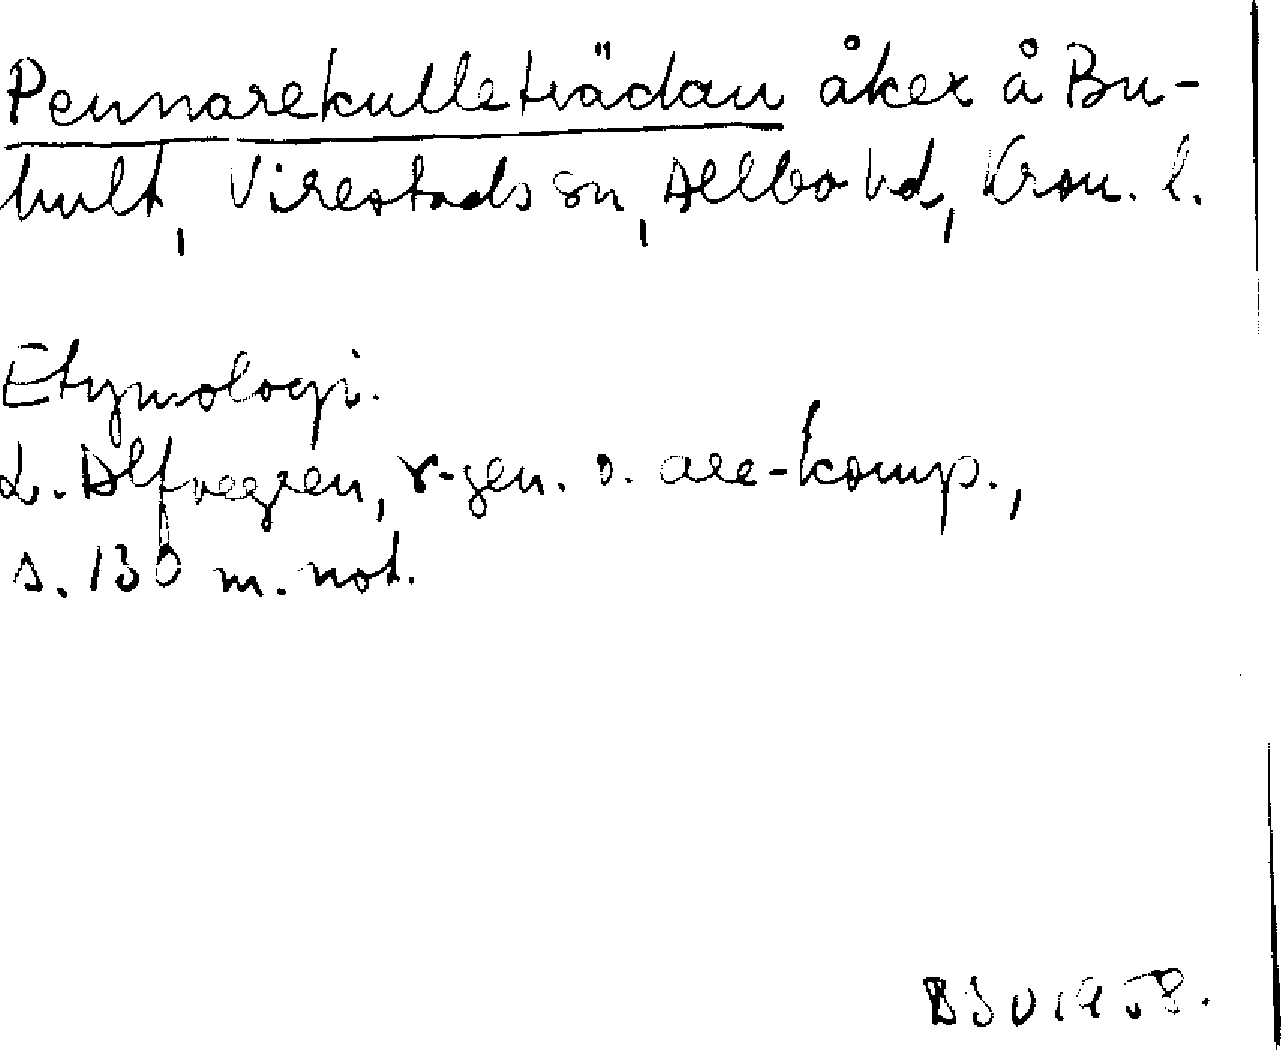 Pennarekulleträdan åker å Bu-
hult, Virestads sn, Allbo hd, Kron. l.
Etymologi.
L. Alfvegren, r-gen. o. are-komp.,
s. 130 m. not.
1958.